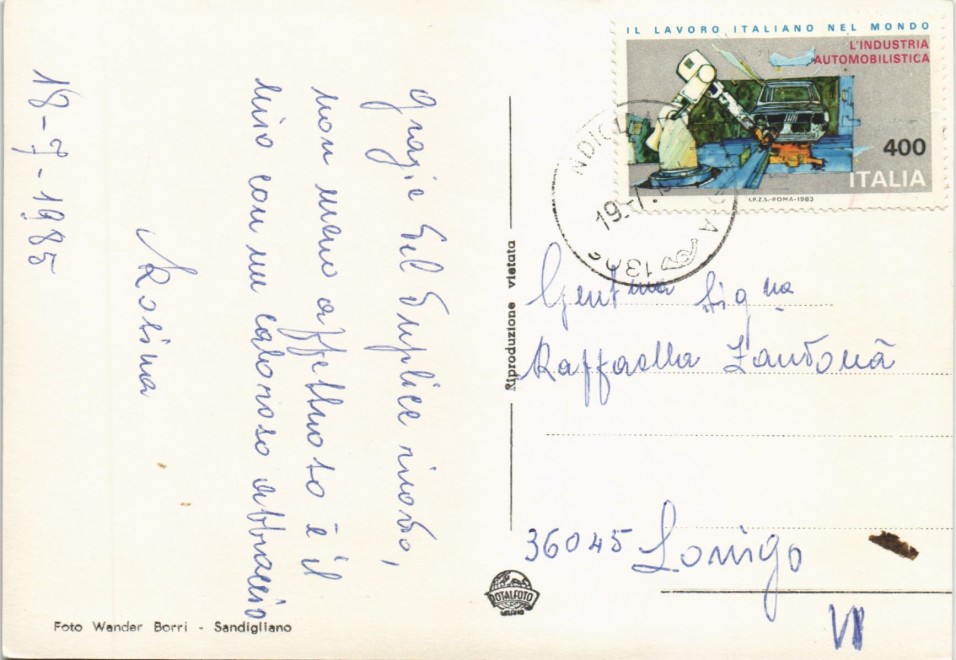 18-7-1985
Grazie del duplice ricordo,
non meno affettuoso è il
mio con un caloroso abbraccio
Rosina
Foto Wander Borri - Sandigliano
Riproduzione vietata
ROTALFOTO
MILANO
IL LAVORO ITALIANO NEL MONDO
L'INDUSTRIA
AUTOMOBILISTICA
400
ITALIA
I.P.Z.S.-ROMA-1983
NDIGL
19.-7.
130
Gent.ma Sig.na
Raffaella Zandonà
36045 Lonigo
VI